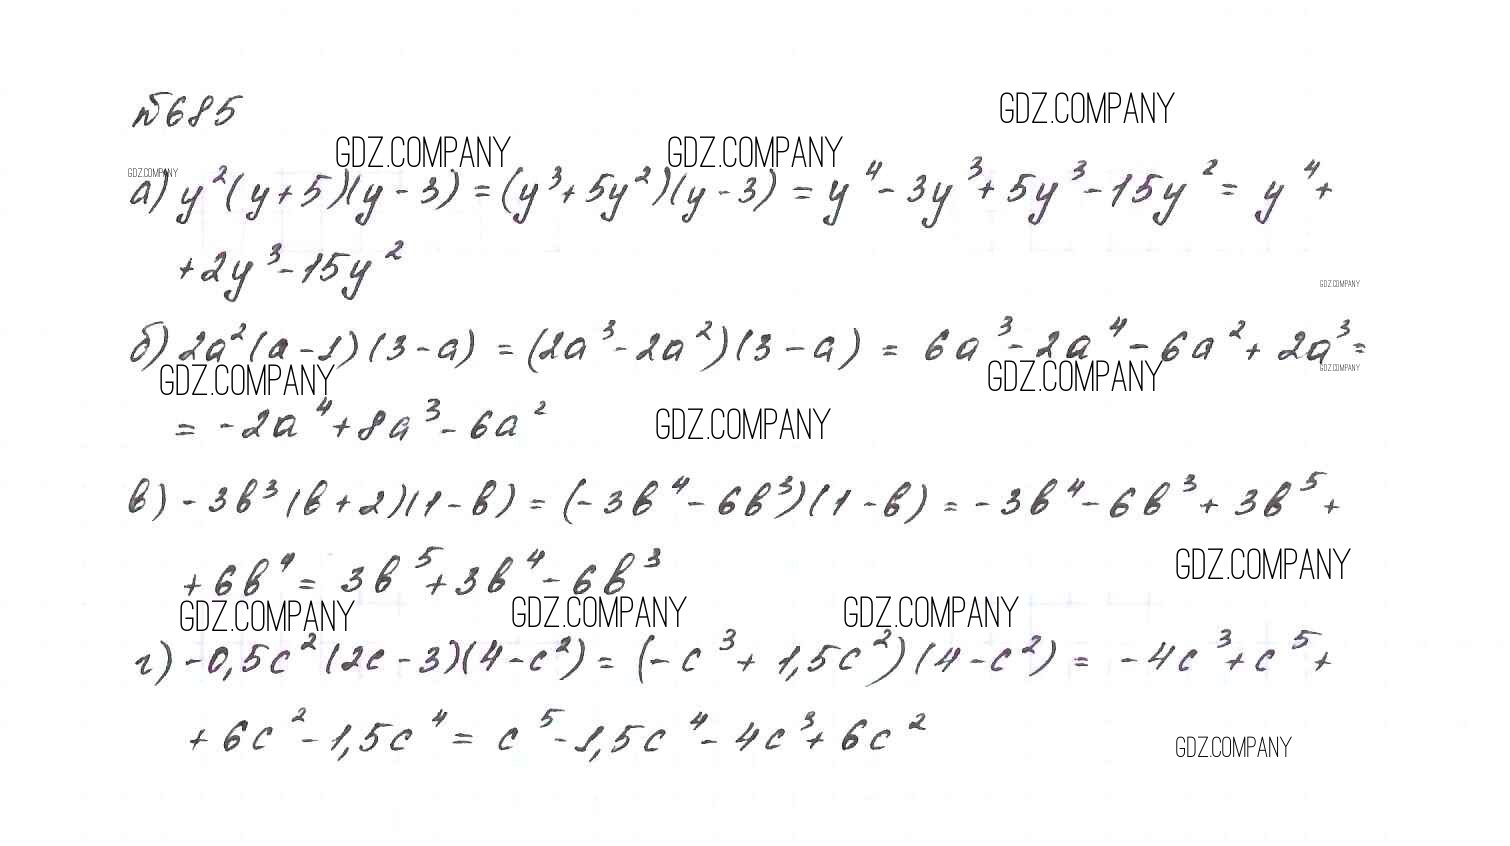 №685
GDZ.COMPANY
GDZ.COMPANY GDZ.COMPANY
GDZ.COMPANY
а) y²(y+5)(y-3) = (y³+5y²)(y-3) = y⁴-3y³+5y³-15y² = y⁴+
+2y³-15y²
GDZ.COMPANY
б) 2a²(a-1)(3-a) = (2a³-2a²)(3-a) = 6a³-2a⁴-6a²+2a³=
GDZ.COMPANY GDZ.COMPANY GDZ.COMPANY
= -2a⁴+8a³-6a²
GDZ.COMPANY
в) -3b³(b+2)(1-b) = (-3b⁴-6b³)(1-b) = -3b⁴-6b³+3b⁵+
+6b⁴ = 3b⁵+3b⁴-6b³
GDZ.COMPANY
GDZ.COMPANY GDZ.COMPANY GDZ.COMPANY
г) -0,5c²(2c-3)(4-c²) = (-c³+1,5c²)(4-c²) = -4c³+c⁵+
+6c²-1,5c⁴ = c⁵-1,5c⁴-4c³+6c²
GDZ.COMPANY